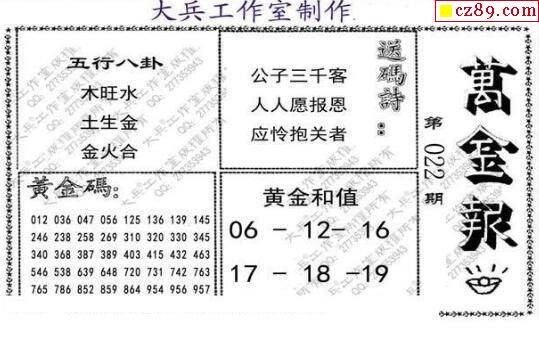 大兵工作室制作
cz89.com
五行八卦
木旺水
土生金
金火合
送碼詩：
公子三千客
人人愿报恩
应怜抱关者
萬金報
第022期
黃金碼：
012 036 047 056 125 136 139 145
246 238 258 269 310 320 330 345
340 368 387 389 403 415 432 463
546 538 639 648 720 730 751 743
765 786 852 859 864 954 956 957
黄金和值
06 - 12- 16
17 - 18 -19